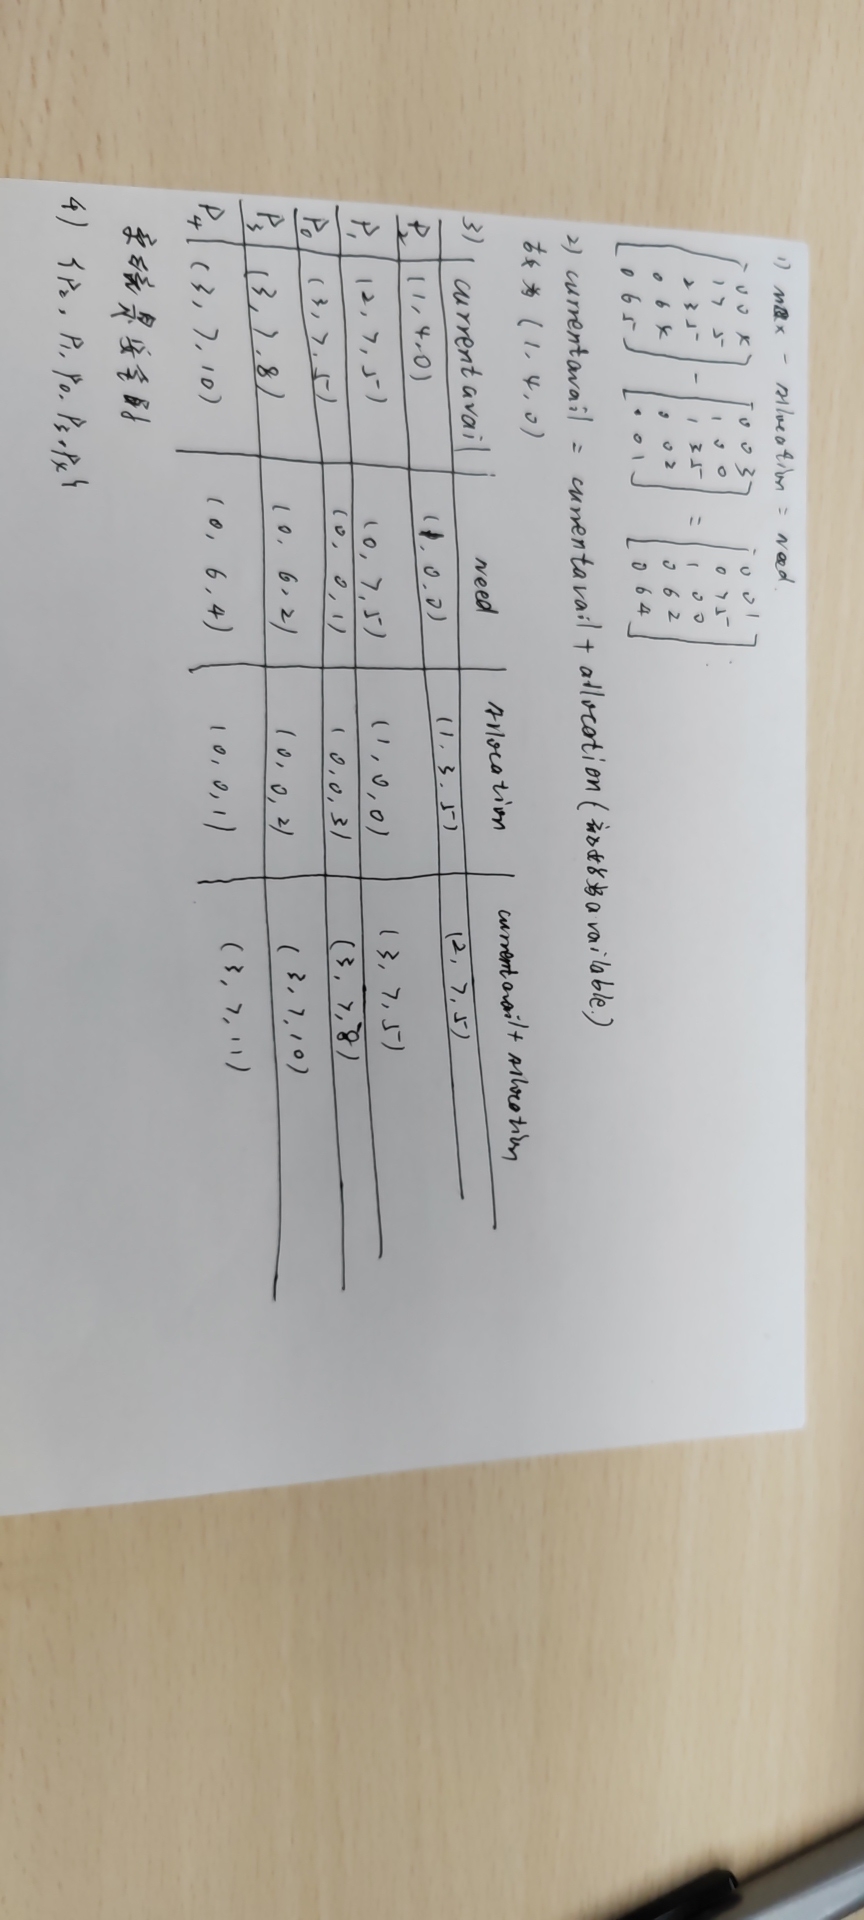 1) max - Allocation = Need.
0 0 4 0 0 3 0 0 1
1 7 5 1 0 0 0 7 5
2 3 5 - 1 3 5 = 1 0 0
0 6 4 0 0 2 0 6 2
0 6 5 0 0 1 0 6 4
2) currentavail = currentavail + allocation (初始为available.)
故为 (1, 4, 0)
3) currentavail need Allocation currentavail + Allocation
P2 (1, 4, 0) (1, 0, 0) (1, 3, 5) (2, 7, 5)
P1 (2, 7, 5) (0, 7, 5) (1, 0, 0) (3, 7, 5)
P0 (3, 7, 5) (0, 0, 1) (0, 0, 3) (3, 7, 8)
P3 (3, 7, 8) (0, 6, 2) (0, 0, 2) (3, 7, 10)
P4 (3, 7, 10) (0, 6, 4) (0, 0, 1) (3, 7, 11)
系统是安全的
4) {P2, P1, P0, P3, P4}